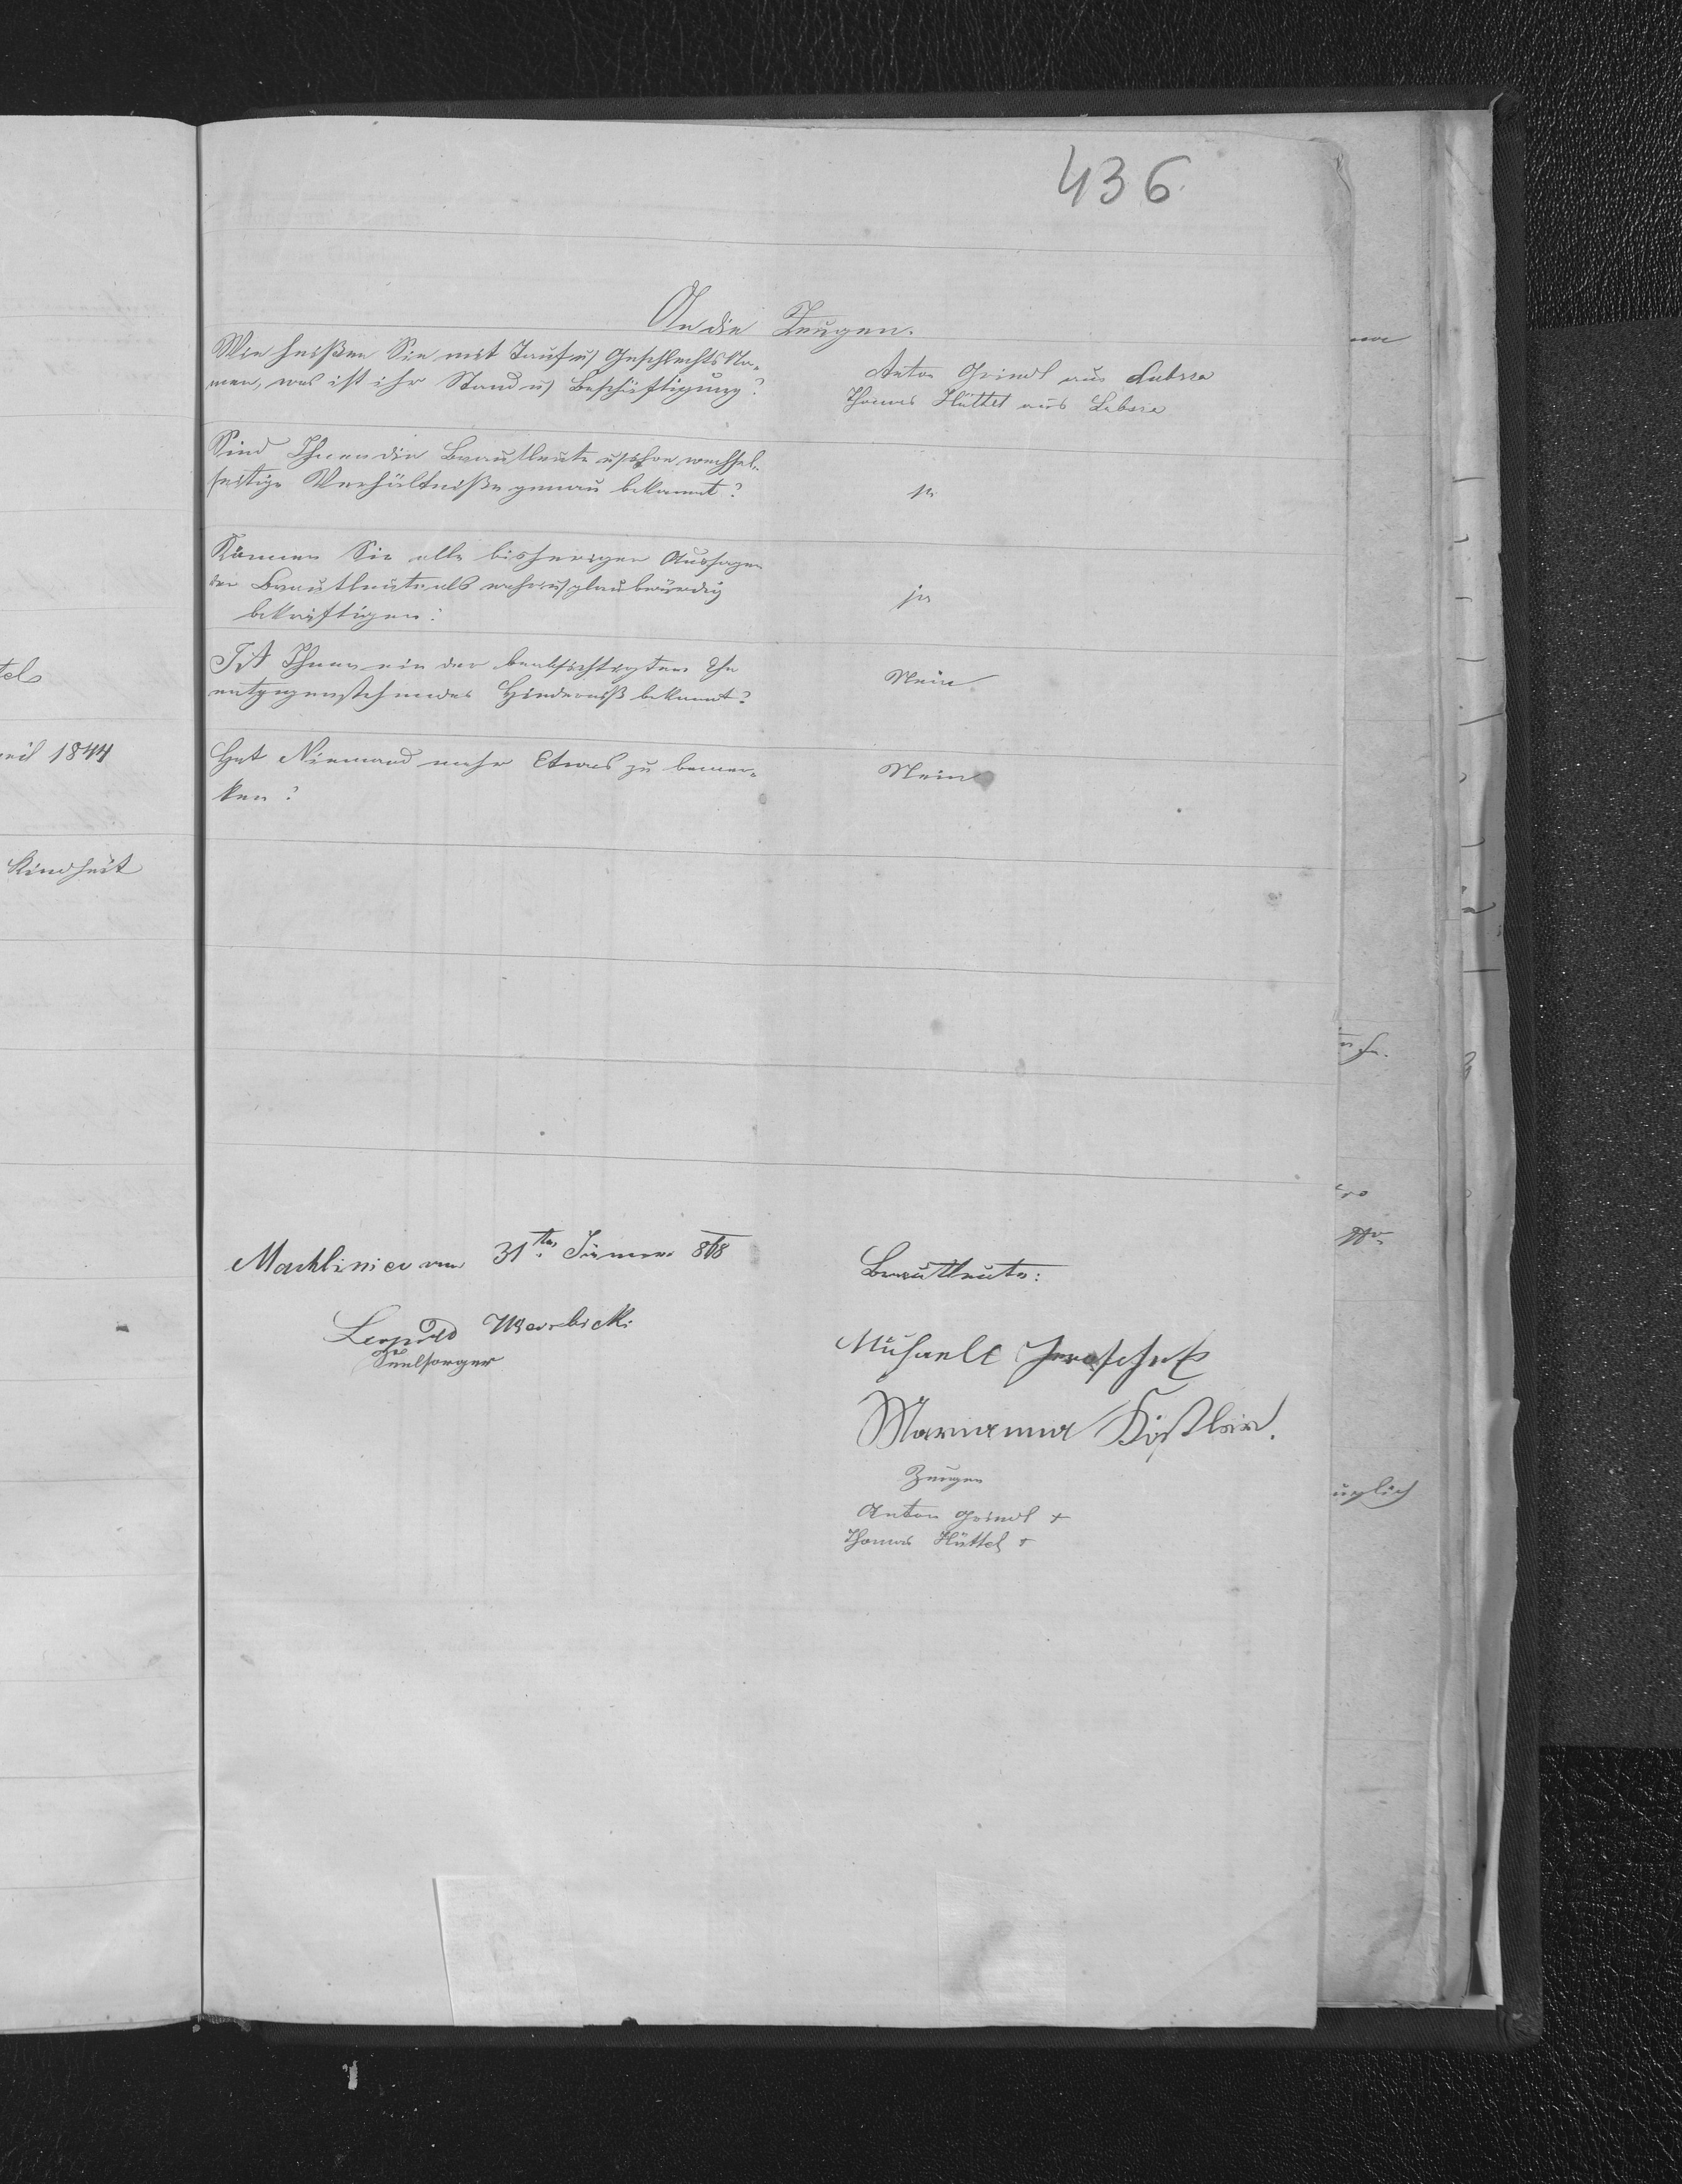 436
An die Zeugen.
Wie heißen Sie mit Tauf u. Geschlechts Na-
men, was ist ihr Stand u. Beschäftigung?
Anton Grindl aus Lubsza
Thomas Hüttel aus Lubsza
Sind Ihnen die Brautleute u. ihre wechsel-
seitige Verhältniße genau bekannt?
ja
Können Sie alle bisherigen Aussagen
der Brautleute als wahr u. glaubwürdig
bekräftigen?
ja
Ist Ihnen ein der beabsichtigten Ehe
entgegenstehendes Hinderniß bekannt?
Nein
Hat Niemand mehr Etwas zu bemer-
ken?
Nein
Machliniec am 31ten Jänner 868
Leopold
Seelsorger
Brautleute:
Marianna Köstler.
Zeugen
Anton Grindl +
Thomas Hüttel +
tel
ril 1844
Kindheit